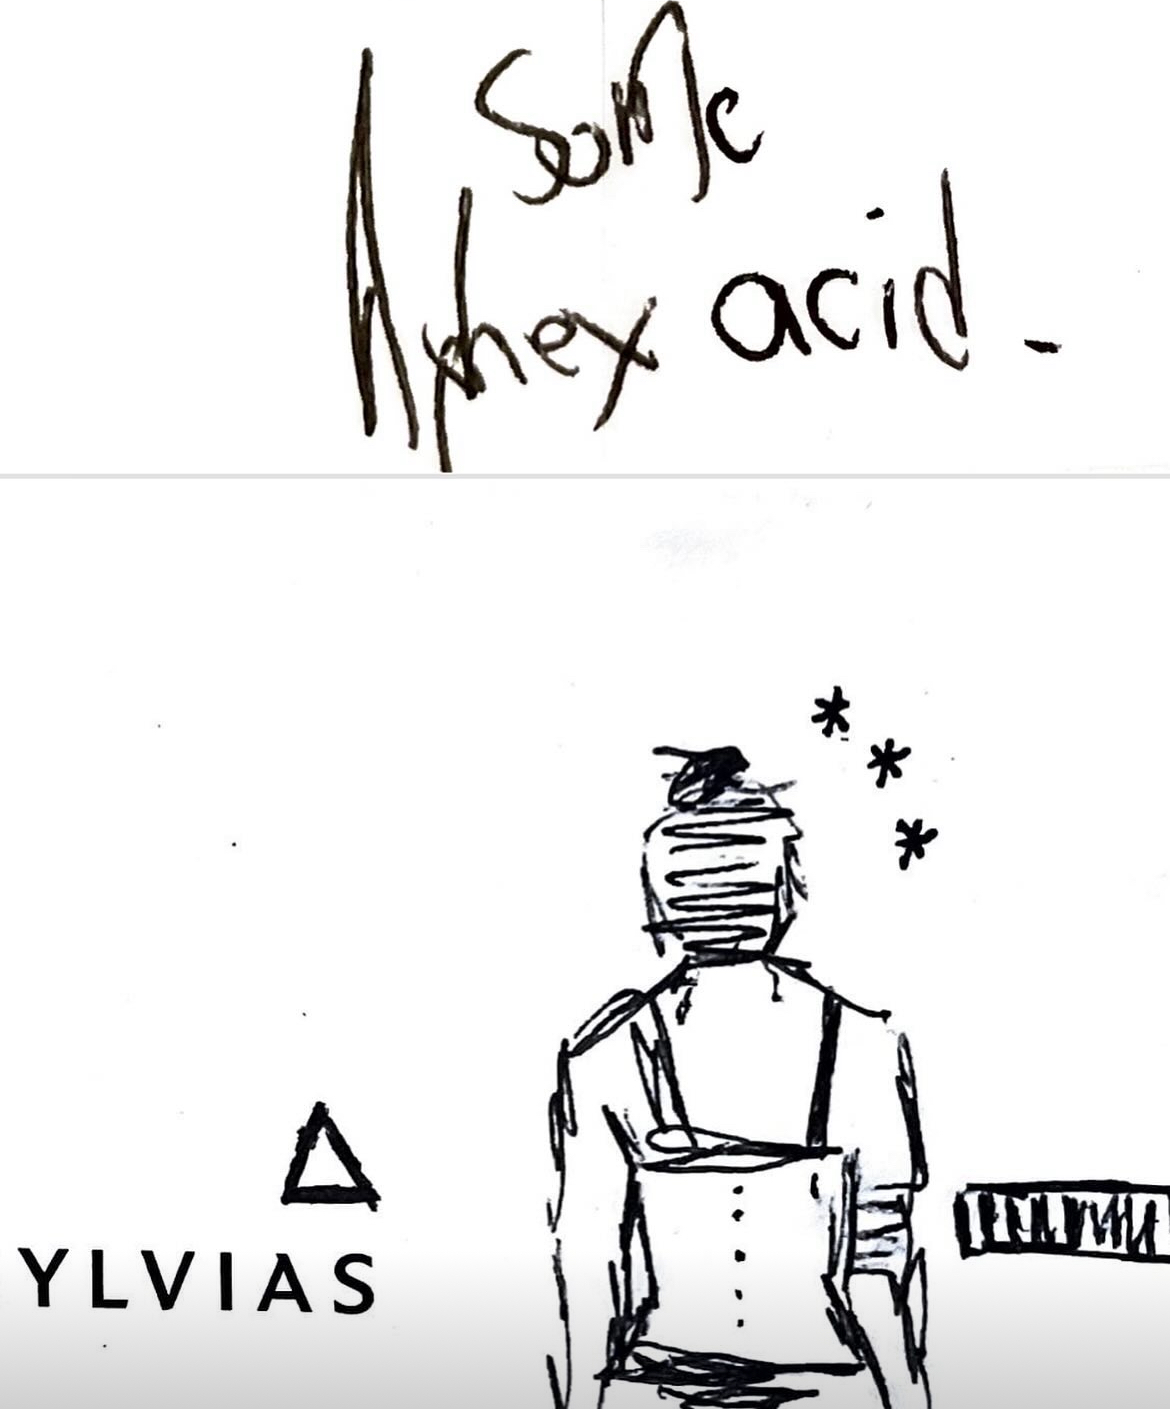 Some
Aphex acid.
YLVIAS